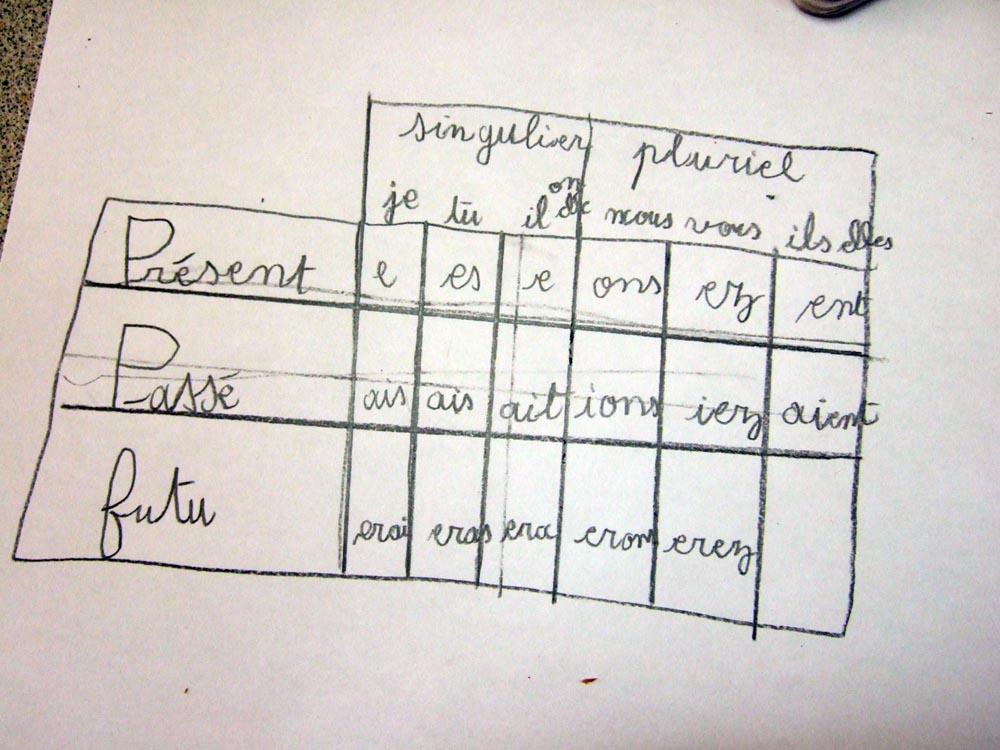 singulier pluriel
je tu il on elle nous vous ils elles
Présent e es e ons ez ent
Passé ais ais ait ions iez aient
futu erai eras era erons erez